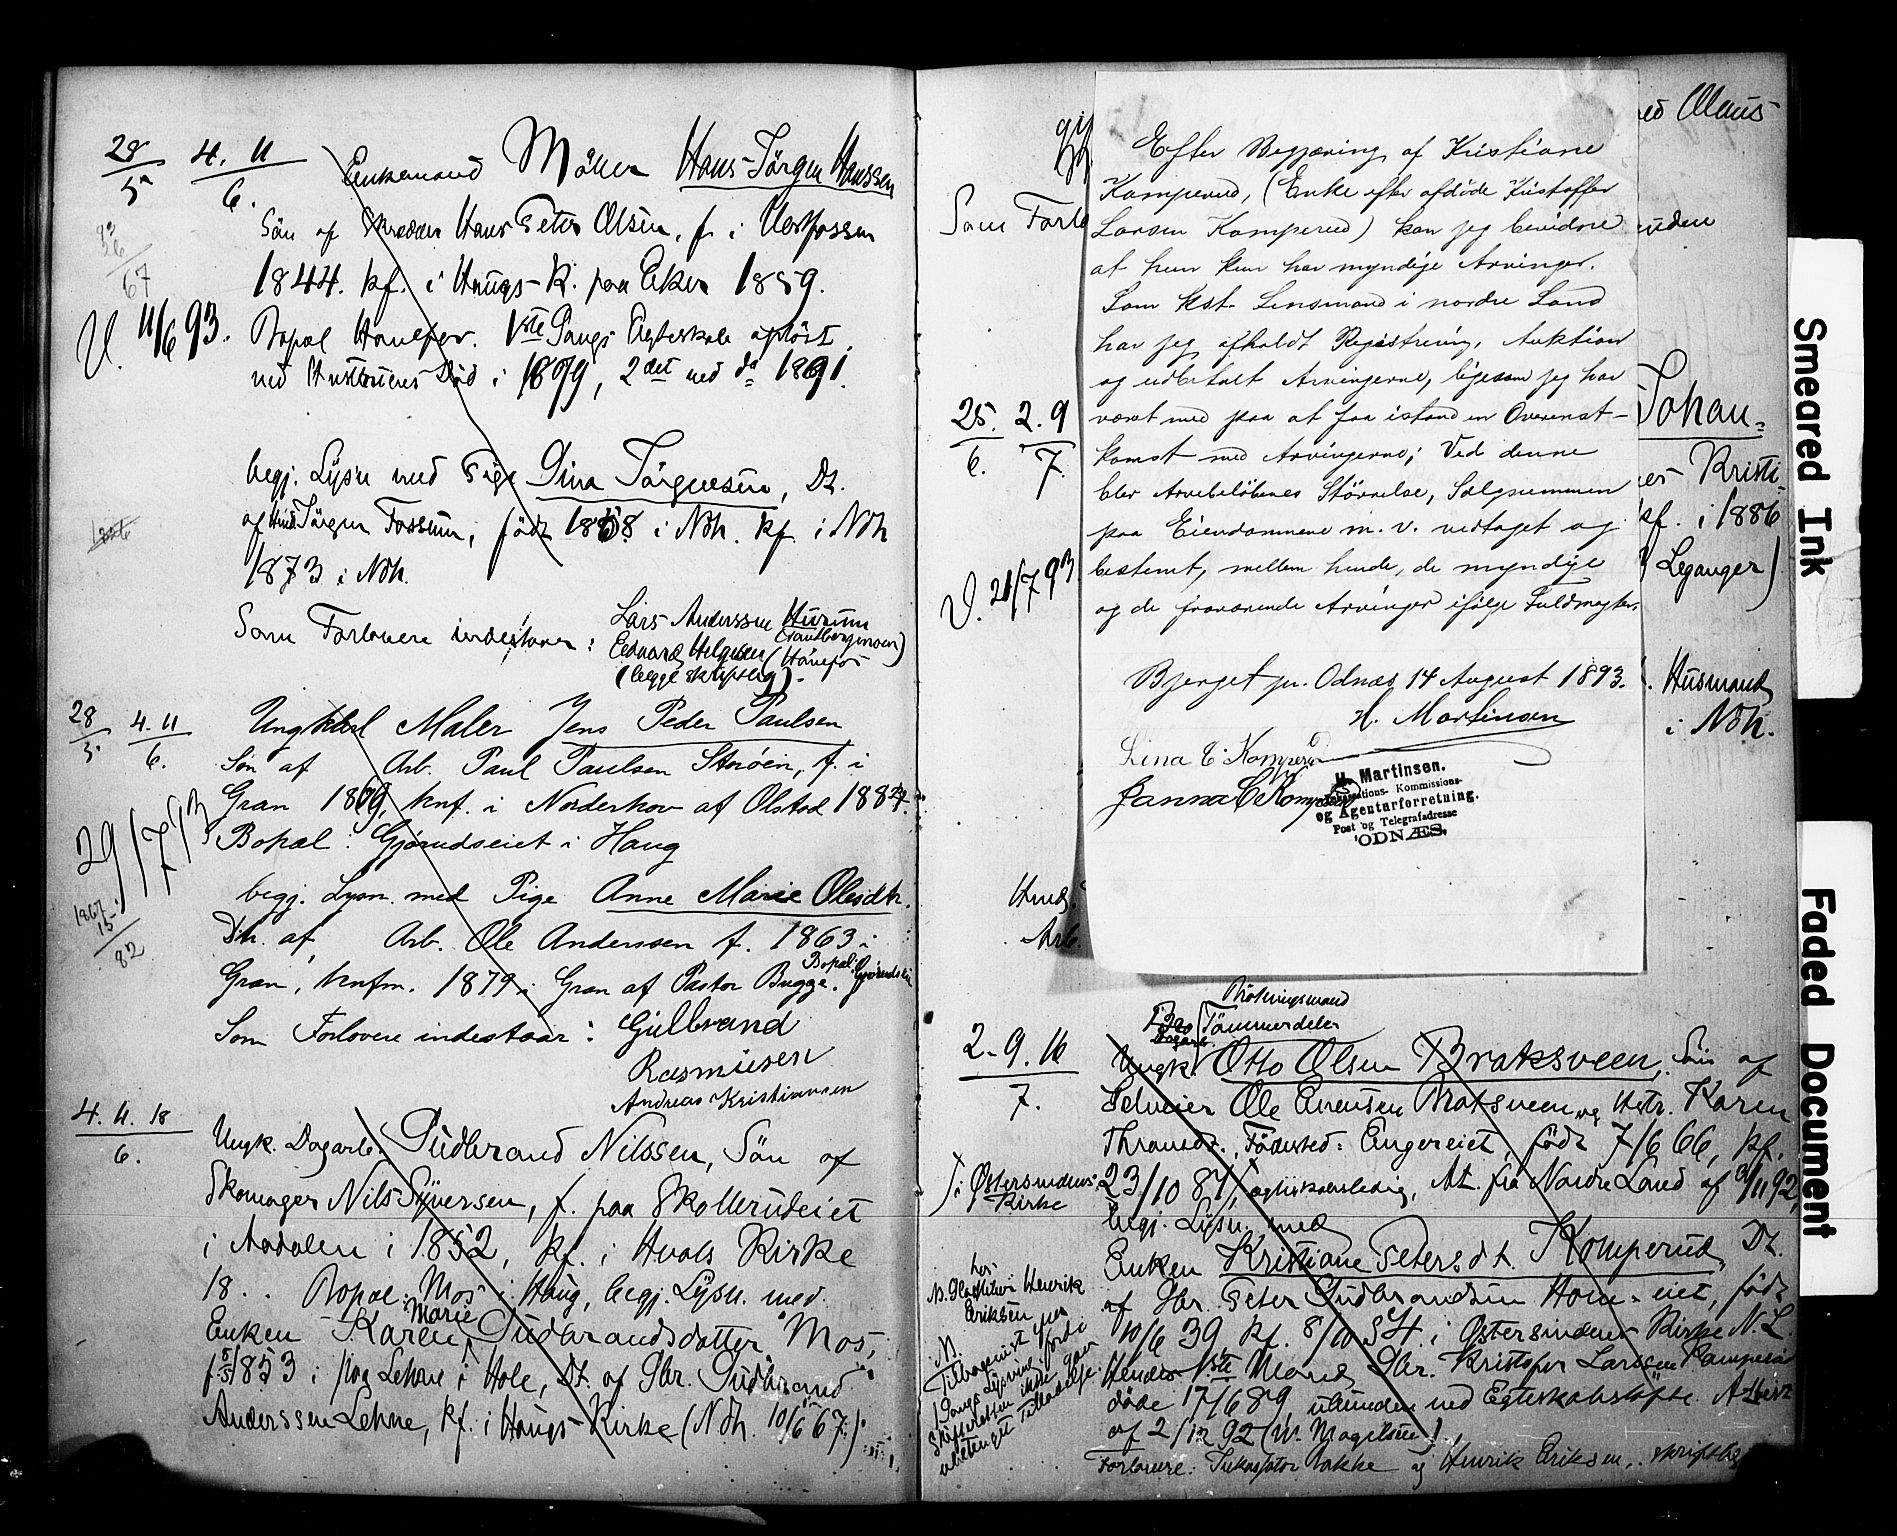 28/5 4. 11/6.
Enkemand Möller Hans Jörgen Hanssen
Sön af Skrædder Hans Peter Olsen, f. i Vestfossen
1844. kf. i Haugs K. paa Eker 1859.
V. 11/6 93.
Bopæl Hönefos. 1ste Gangs Egteskab oplöst
ved Hustruens Död i 1879, 2det ved do 1891.
begj. Lysn. med Pige Dina Jörgensen, Dt.
af Jörgen Fossum, födt 1858 i Ndh. kf. i Ndh
1873 i Ndh.
Som Forlovere indestaar: Lars Anderssen Hurum
Edvard Helgesen (Hönefos
(begge skriftlig).
28/5. 4. 11/6.
Ungkarl Maler Jens Peder Paulsen
Søn af Arb. Paul Paulsen Storöen, f. i
Gran 1869, knf. i Norderhov af Olstad 1884.
29/7 93
Bopæl: Gjørudseiet i Haug
begj. Lysn. med Pige Anne Marie Olesdtr.
1867
15
82
Dtr. af Arb. Ole Anderssen f. 1863 i
Bopæl: Gjørudseiet
Gran, knfm. 1879 i Gran af Pastor Bugge.
Som Forlovere indestaar: Gulbrand
Rasmusen
Andreas Kristiansen
4. 11. 18/6.
Ungk. Dagarb. Gudbrand Nilssen, Sön af
Skomager Nils Syversen, f. paa Skollerudeiet
i Aadalen i 1852, kf. i Hvals Kirke
18 . . Bopæl: Mos i Haug, begj. Lysn. med
Enken Karen Marie Gudbrandsdatter Mos,
f. 5/5 1853 i paa Lehne i Hole, Dt. af Gbr. Gudbrand
Anderssen Lehne, kf. i Haugs Kirke (Ndh. 10/6 67.)
Olaus
Som Forlo
unden
25. 2. 9
6. 7.
V. 21/7 93
Johan-
Kristi-
kf. i 1886
Leganger)
Husmand
i Ndh.
Arb.
Efter Begjæring af Kristiane
Komperud, (Enke efter afdöde Kristoffer
Larsen Komperud) kan jeg bevidne
at hun kun har myndige Arvinger.
Som kst. Lensmand i nordre Land
har jeg afholdt Registrering, Auktion
og udbetalt Arvingerne, ligesom jeg har
været med paa at faa istand en Overenst-
komst med Arvingerne; Ved denne
blev Arvebeløbenes Størrelse, Salgsummen
paa Eiendommene m. v. vedtaget og
bestemt, mellem hende, de myndige
og de fraværende Arvinger ifølge Fuldmagter.
Bjerget pr. Odnæs 14 August 1893.
H. Martinsen
Lina C. Komperud
Janna C Komperud
H. Martinsen.
Kommissions-
og Agenturforretning.
Post og Telegrafadresse
ODNÆS.
2. 9. 16
7.
Brötningsmand
Tömmerdeler
Dagarb.
Ungk. Otto Olsen Bratsveen, Sön af
Selveier Ole Evensen Bratsveen og Hstr. Karen
Thronsdt., Födested: Engereiet, födt 7/6 66, kf.
i Østersindens Kirke
23/10 81, egteskabsledig, At. fra Nordre Land af 3/11 92,
begj. Lysn. med
Enken Kristiane Petersdt. Komperud, Dt.
af Gbr. Peter Gudbrandsen Hom-eiet, födt
10/6 39, kf. 8/10 54 i Østersindens Kirke N. L.
Hendes 1ste Mand Gbr. Kristofer Larssen Komperud
döde 17/6 89, ubunden ved Egteskabslöfte. Attest
af 2/12 92 (W. Magelssen)
Forlovere: Bakke og Henrik Eriksen, skriftlig
hos
Henrik
Eriksen
N.
Tilbagevist per
1 Gangs Lysning fordi
Skifteretten ikke gav
ubetinget Tilladelse.
Smeared Ink
Faded Document